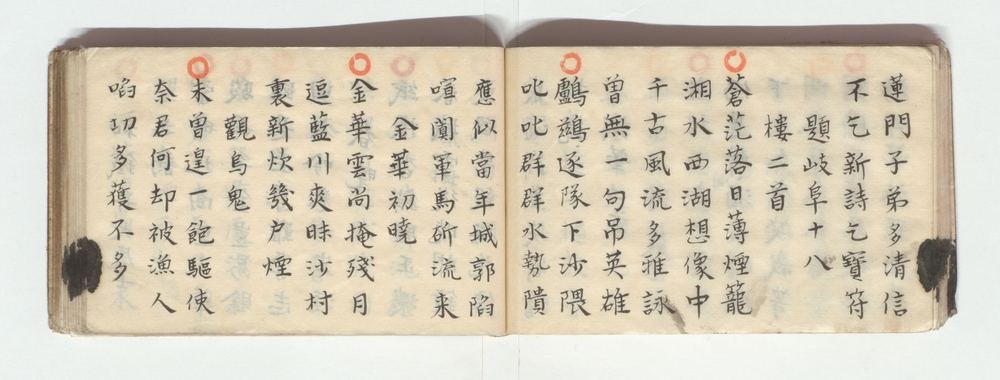 蓮門子弟多清信
不乞新詩乞寶符
題岐阜十八
樓二首
蒼茫落日薄煙籠
湘水西湖想像中
千古風流多雅詠
曽無一句吊英雄
鸕鷀逐隊下沙隈
叱叱群群水勢隤
應似當年城郭陷
喧闐軍馬斫流来
金華初曉
金華雲尚掩殘月
逗藍川爽昧沙村
裏新炊幾戶煙
觀烏鬼
未曽遑一飽驅使
奈君何却被漁人
啗功多獲不多